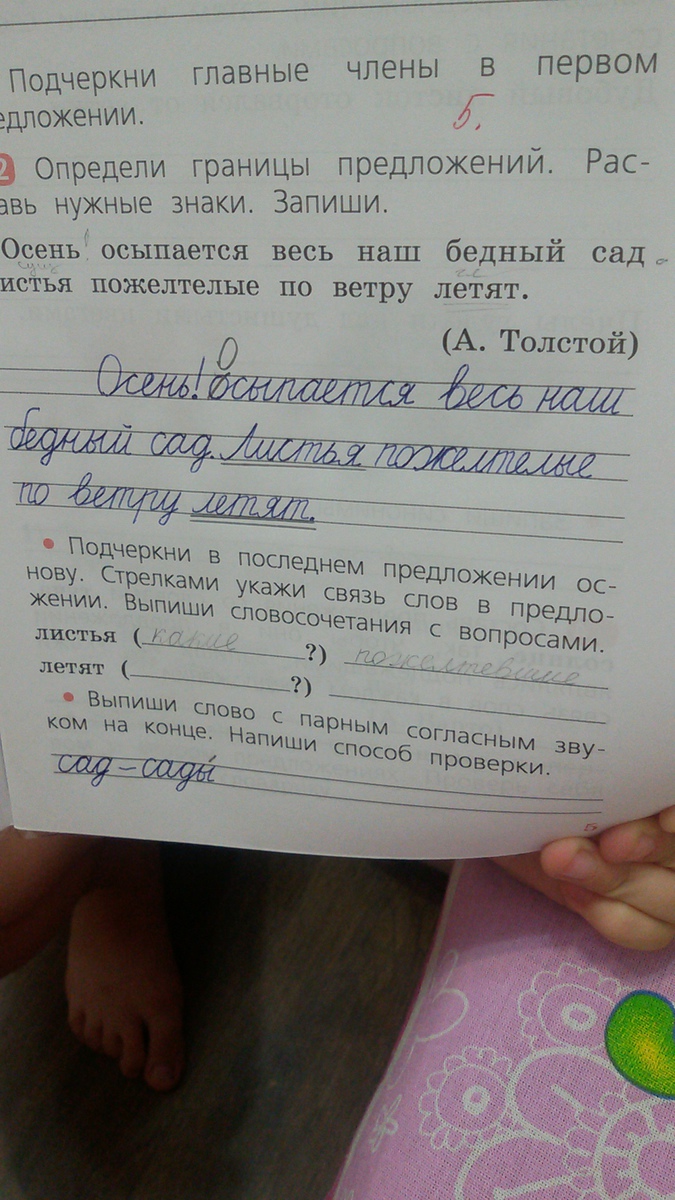 Подчеркни главные члены в первом
едложении.
5.
2 Определи границы предложений. Рас-
авь нужные знаки. Запиши.
Осень ! осыпается весь наш бедный сад .
истья пожелтелые по ветру летят.
(А. Толстой)
О
Осень! осыпается весь наш
бедный сад. Листья пожелтелые
по ветру летят.
• Подчеркни в последнем предложении ос-
нову. Стрелками укажи связь слов в предло-
жении. Выпиши словосочетания с вопросами.
листья (какие ?) пожелтевшие
летят ( ?)
• Выпиши слово с парным согласным зву-
ком на конце. Напиши способ проверки.
сад – сады́
5